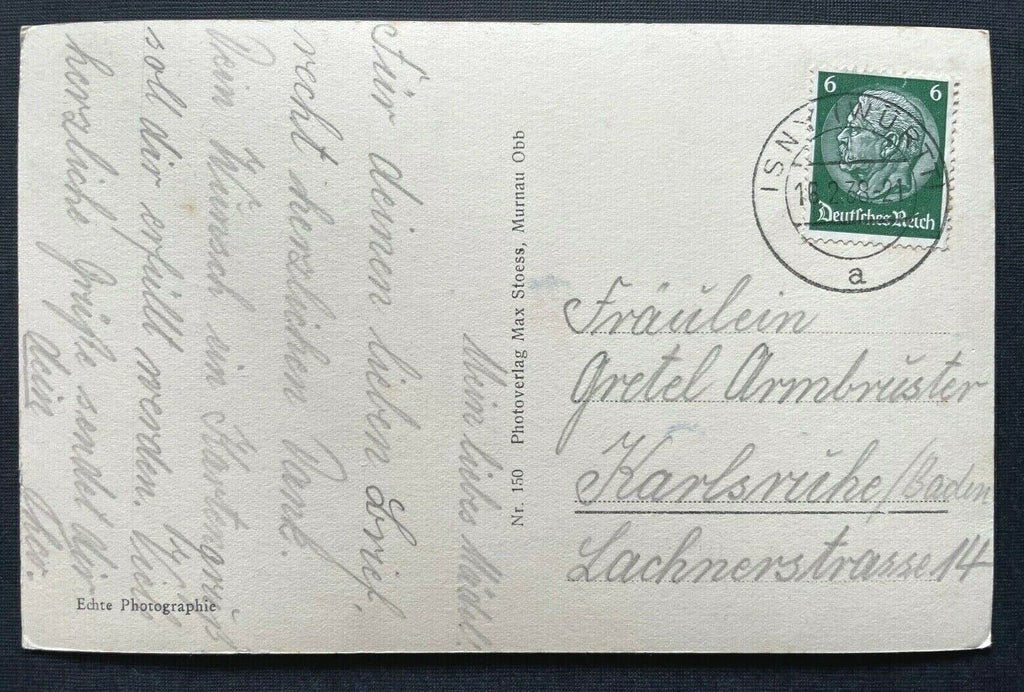 Mein liebes Mädel!
Für deinen lieben Brief,
recht herzlichen Dank.
Dein Wunsch ein Kartengruß
soll dir erfüllt werden.
herzliche Grüße sendet dir
dein
Echte Photographie
Nr. 150 Photoverlag Max Stoess, Murnau Obb
6 6
Deutsches Reich
ISNY
.2.38-21
a
Fräulein
Gretel Armbruster
Karlsruhe/Baden
Lachnerstrasse 14